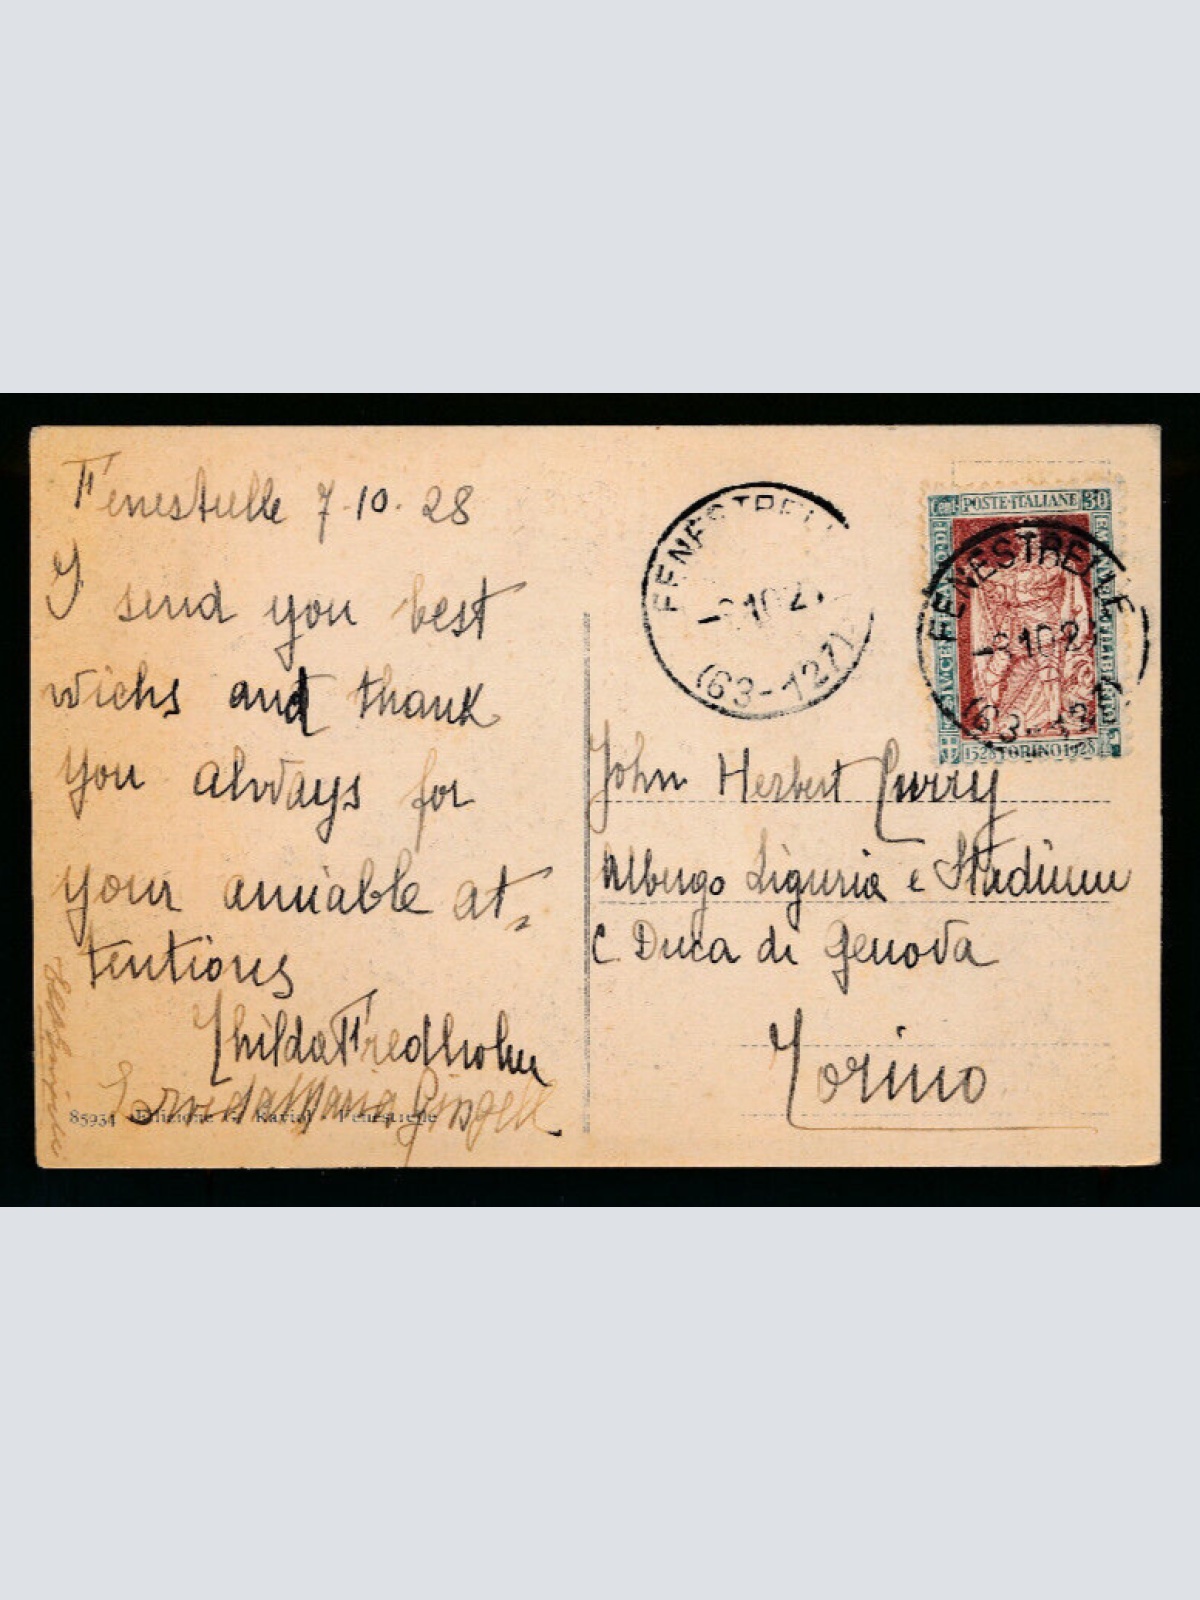 Fenestrelle 7-10-28
I send you best
wichs and thank
you always for
your amiable at-
tentions
Fredholm
85934 Edizione Fenestrelle
FENESTRELLE
(63-127)
POSTE·ITALIANE 30
FENESTRELLE
1528 TORINO 1928
John Herbert Curry
Albergo Liguria e Stadium
C. Duca di Genova
Torino